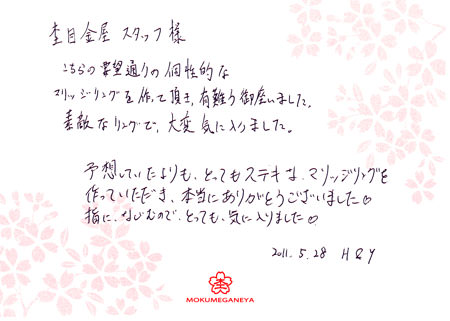 杢目金屋 スタッフ 様
こちらの要望通りの個性的な
マリッジリングを作って頂き、有難う御座いました。
素敵なリングで、大変気に入りました。
予想していたよりも、とってもステキな、マリッジリングを
作っていただき、本当にありがとうございました♡
指に、なじむので、とっても、気に入りました♡
2011. 5. 28 H & Y
MOKUMEGANEYA